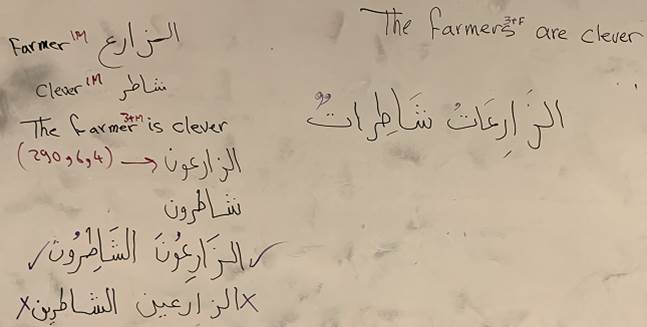 Farmer 1M الزارع
Clever 1M شاطر
The farmer 3+M is clever
(290,6,4) → الزارعون
شاطرون
✓ الزَارِعُونَ الشَاطِرُونَ ✓
X الزارعين الشاطرين X
The farmers 3+F are clever
الزَارِعَاتُ شَاطِرات